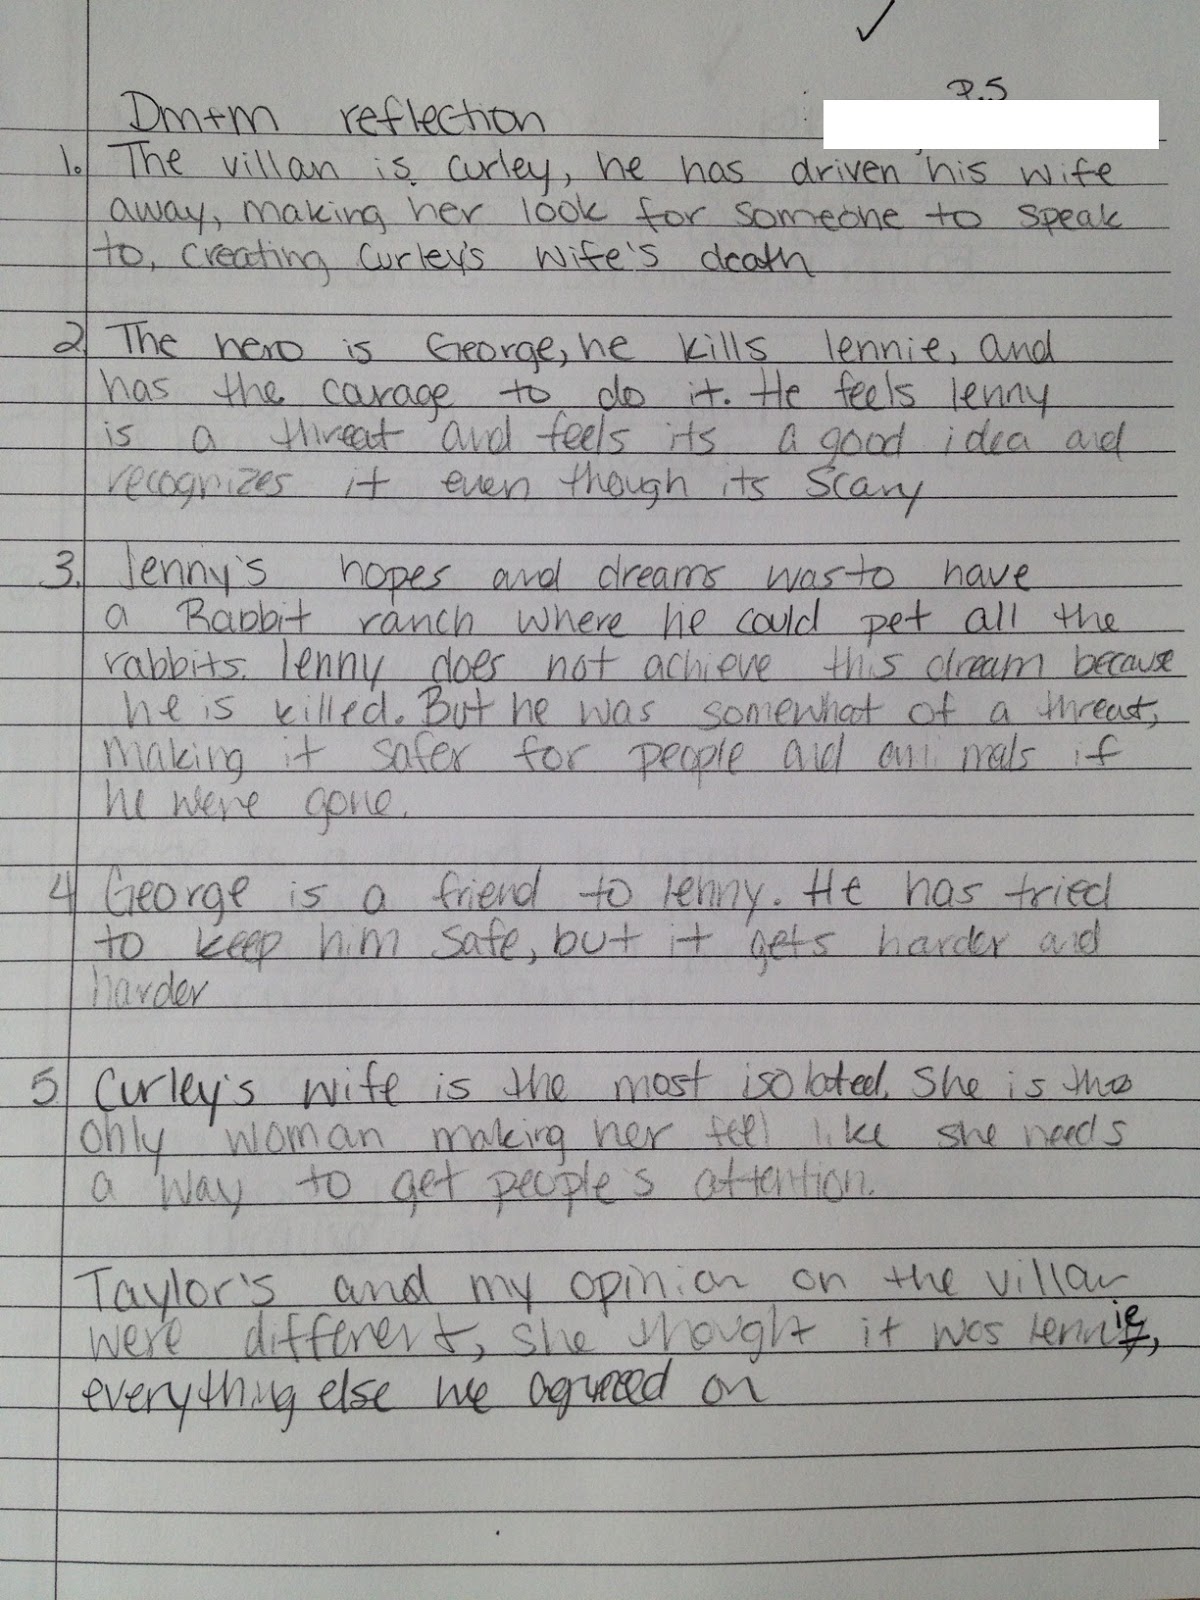 P.5
Dm+m reflection
1. The villan is Curley, he has driven his wife
away, making her look for someone to speak
to, creating Curley's wife's death
2. The hero is George, he kills lennie, and
has the carage to do it. He feels lenny
is a threat and feels its a good idea and
recognizes it even though its scary
3. lenny's hopes and dreams was to have
a Rabbit ranch where he could pet all the
rabbits. lenny does not achieve this dream because
he is killed. But he was somewhat of a threat,
making it safer for people and animals if
he were gone.
4 George is a friend to lenny. He has tried
to keep him safe, but it gets harder and
harder
5 Curley's wife is the most isolated. She is the
only woman making her feel like she needs
a way to get people's attention.
Taylor's and my opinion on the villan
were different, she thought it was lennie,
everything else we agreed on